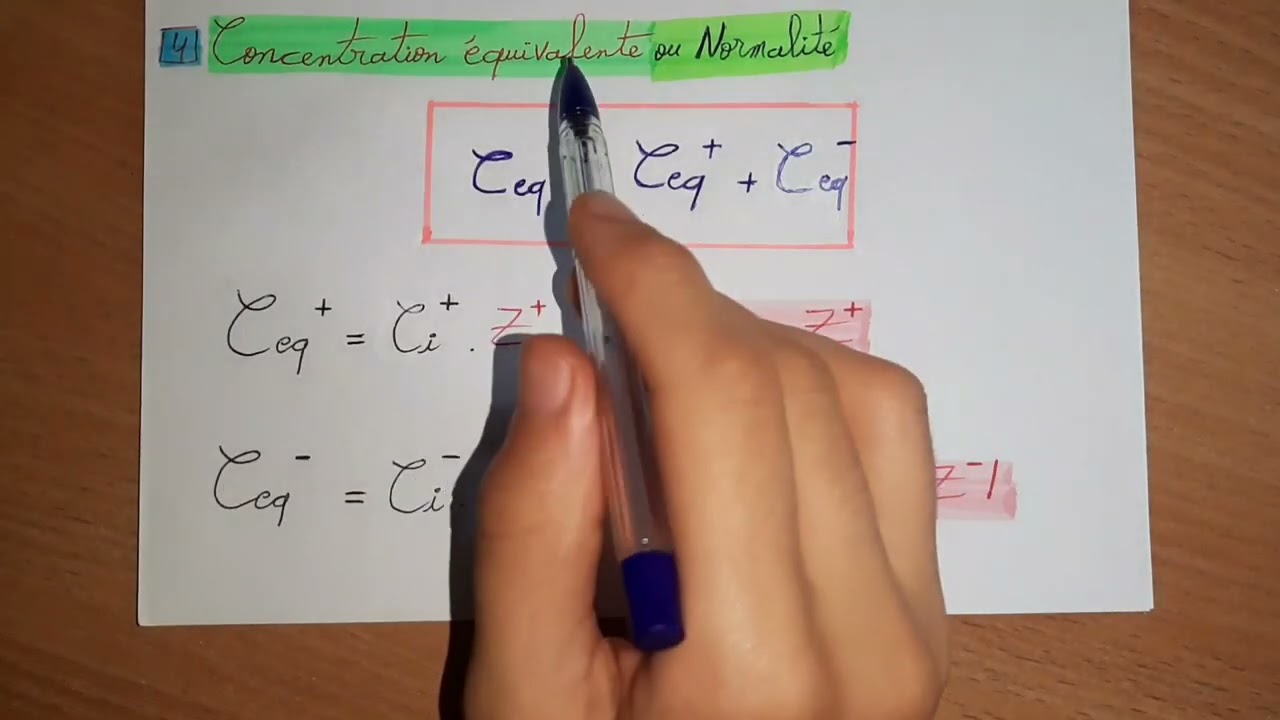 4 Concentration équivalente ou Normalité
Ceq Ceq⁺ + Ceq⁻
Ceq⁺ = Ci⁺ . Z⁺ Z⁺
Ceq⁻ = Ci⁻ . Z⁻|